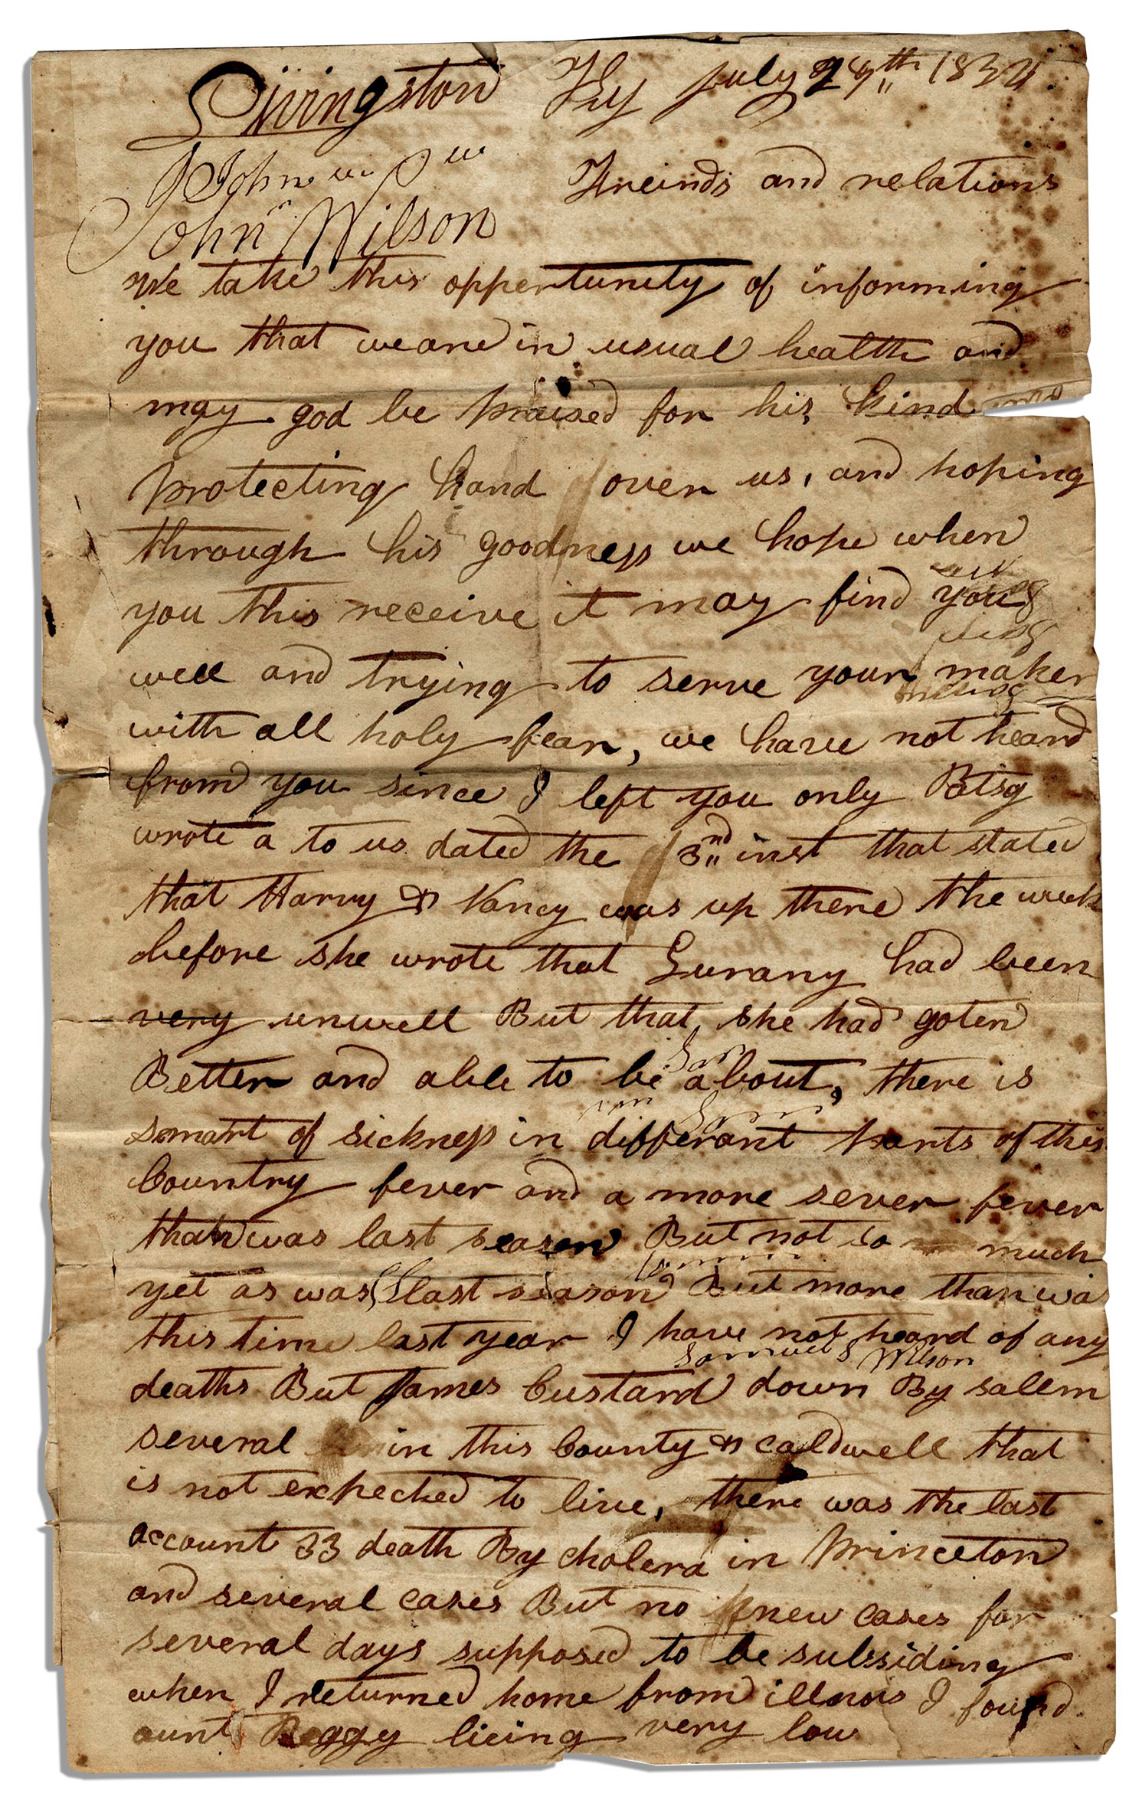 Livingston Ky July 29th 1834
John
Freinds and relations
John Wilson
We take this oppertunity of informing
you that we are in usual health and
may god be praised for his kind and
protecting hand over us, and hoping
through his goodness we hope when
you this receive it may find you
well and trying to serve your maker
with all holy fear, we have not heard
from you since I left you only Betsy
wrote a to us dated the 13nd inst that stated
that Harvy & Nancy was up there the week
before she wrote that Lurany had been
very unwell But that she had goten
Better and able to be about, there is
smart of sickness in differant parts of this
Country fever and a more sever fever
than was last season But not so much
yet as was last season But more than was
this time last year I have not heard of any
Samuel Wilson
deaths But James Custard down By salem
several in this County & caldwell that
is not expected to live, there was the last
account 33 death By cholera in Princeton
and several cases But no new cases for
several days supposed to be subssiding
when I returned home from illnois I found
aunt Peggy lieing very low